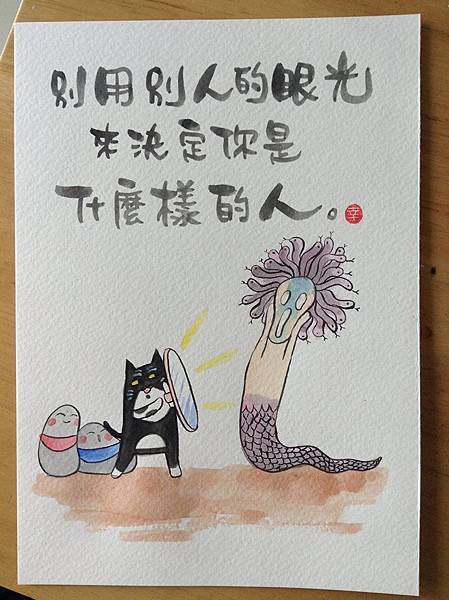 別用別人的眼光
來決定你是
什麼樣的人。
幸